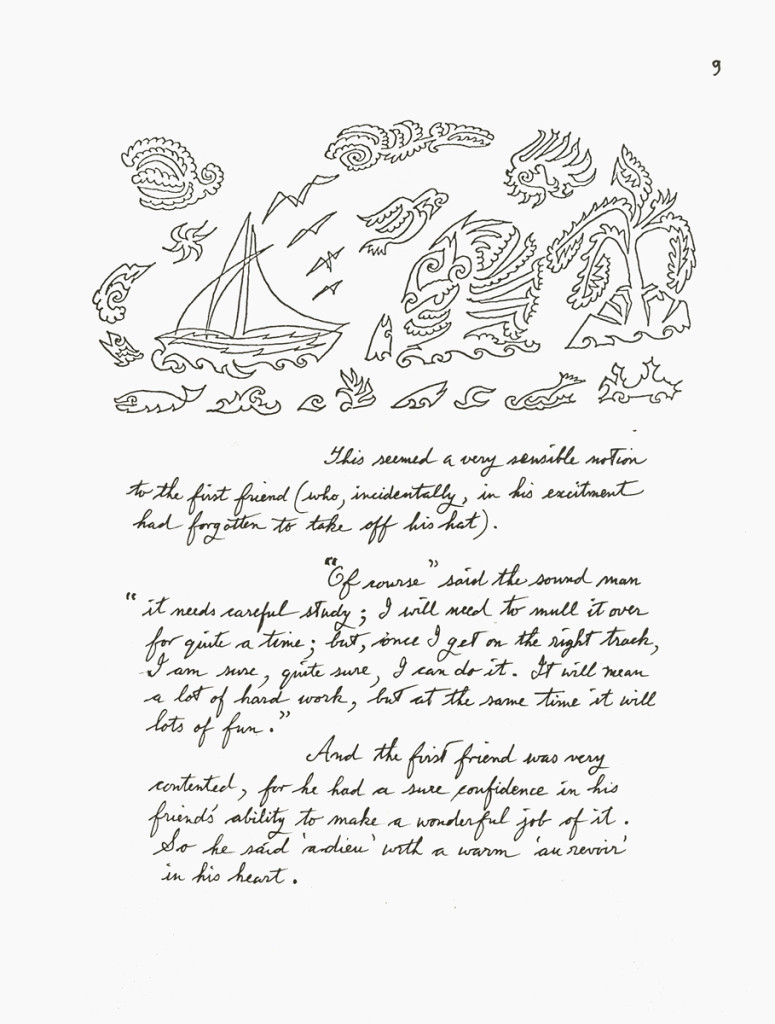 9
This seemed a very sensible notion
to the first friend (who, incidentally, in his excitment
had forgotten to take off his hat).
"Of course" said the sound man
"it needs careful study; I will need to mull it over
for quite a time; but, once I get on the right track,
I am sure, quite sure, I can do it. It will mean
a lot of hard work, but at the same time it will
lots of fun."
And the first friend was very
contented, for he had a sure confidence in his
friend's ability to make a wonderful job of it.
So he said 'adieu' with a warm 'au revoir'
in his heart.